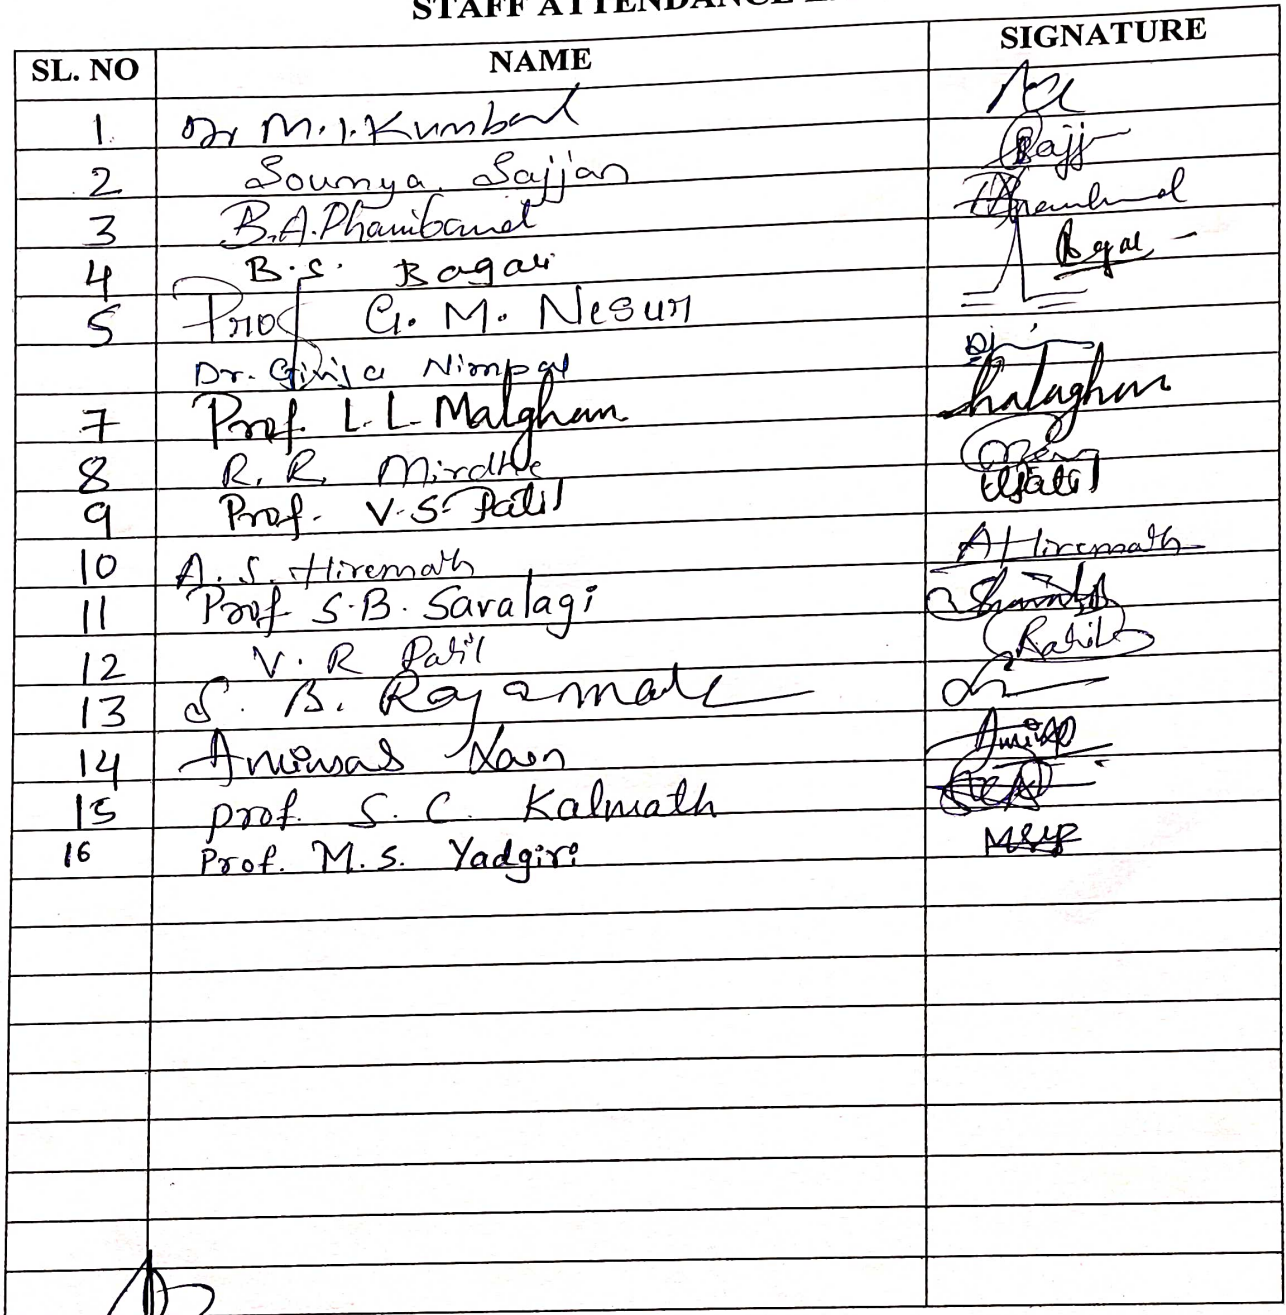 STAFF ATTENDANCE
SL. NO NAME SIGNATURE
1. Dr M.I. Kumbar
2 Soumya. Sajjan Sajj
3 B.A. Phanibandh
4 B.S. Bagali
5 Prof G. M. Nesur
Dr. Girija Nimpal
7 Prof. L.L. Malghan Malaghan
8 R. R. Mirdhe
9 Prof. V.S. Patil VSPatil
10 A. S. Hiremath AHiremath
11 Prof S.B. Savalagi
12 V. R Patil RPatil
13 S. B. Rajamane
14
15 prof. S. C. Kalmath
16 Prof. M. S. Yadgiri MSYP